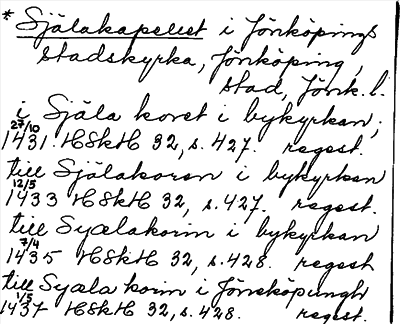 * Själakapellet i Jönköpings
stadskyrka, Jönköping,
stad, Jönk. l.
i Själa koret i bykyrkan;
27/10
1431. HSkH 32, s. 427. regest.
till Själakoran i bykyrkan
12/5
1433 HSkH 32, s. 427. regest.
till Syælakorin i bykyrkan
7/4
1435 HSkH 32, s. 428. regest
till Syæla korin i Jöneköpungh
1/5
1437 HSkH 32, s. 428. regest.